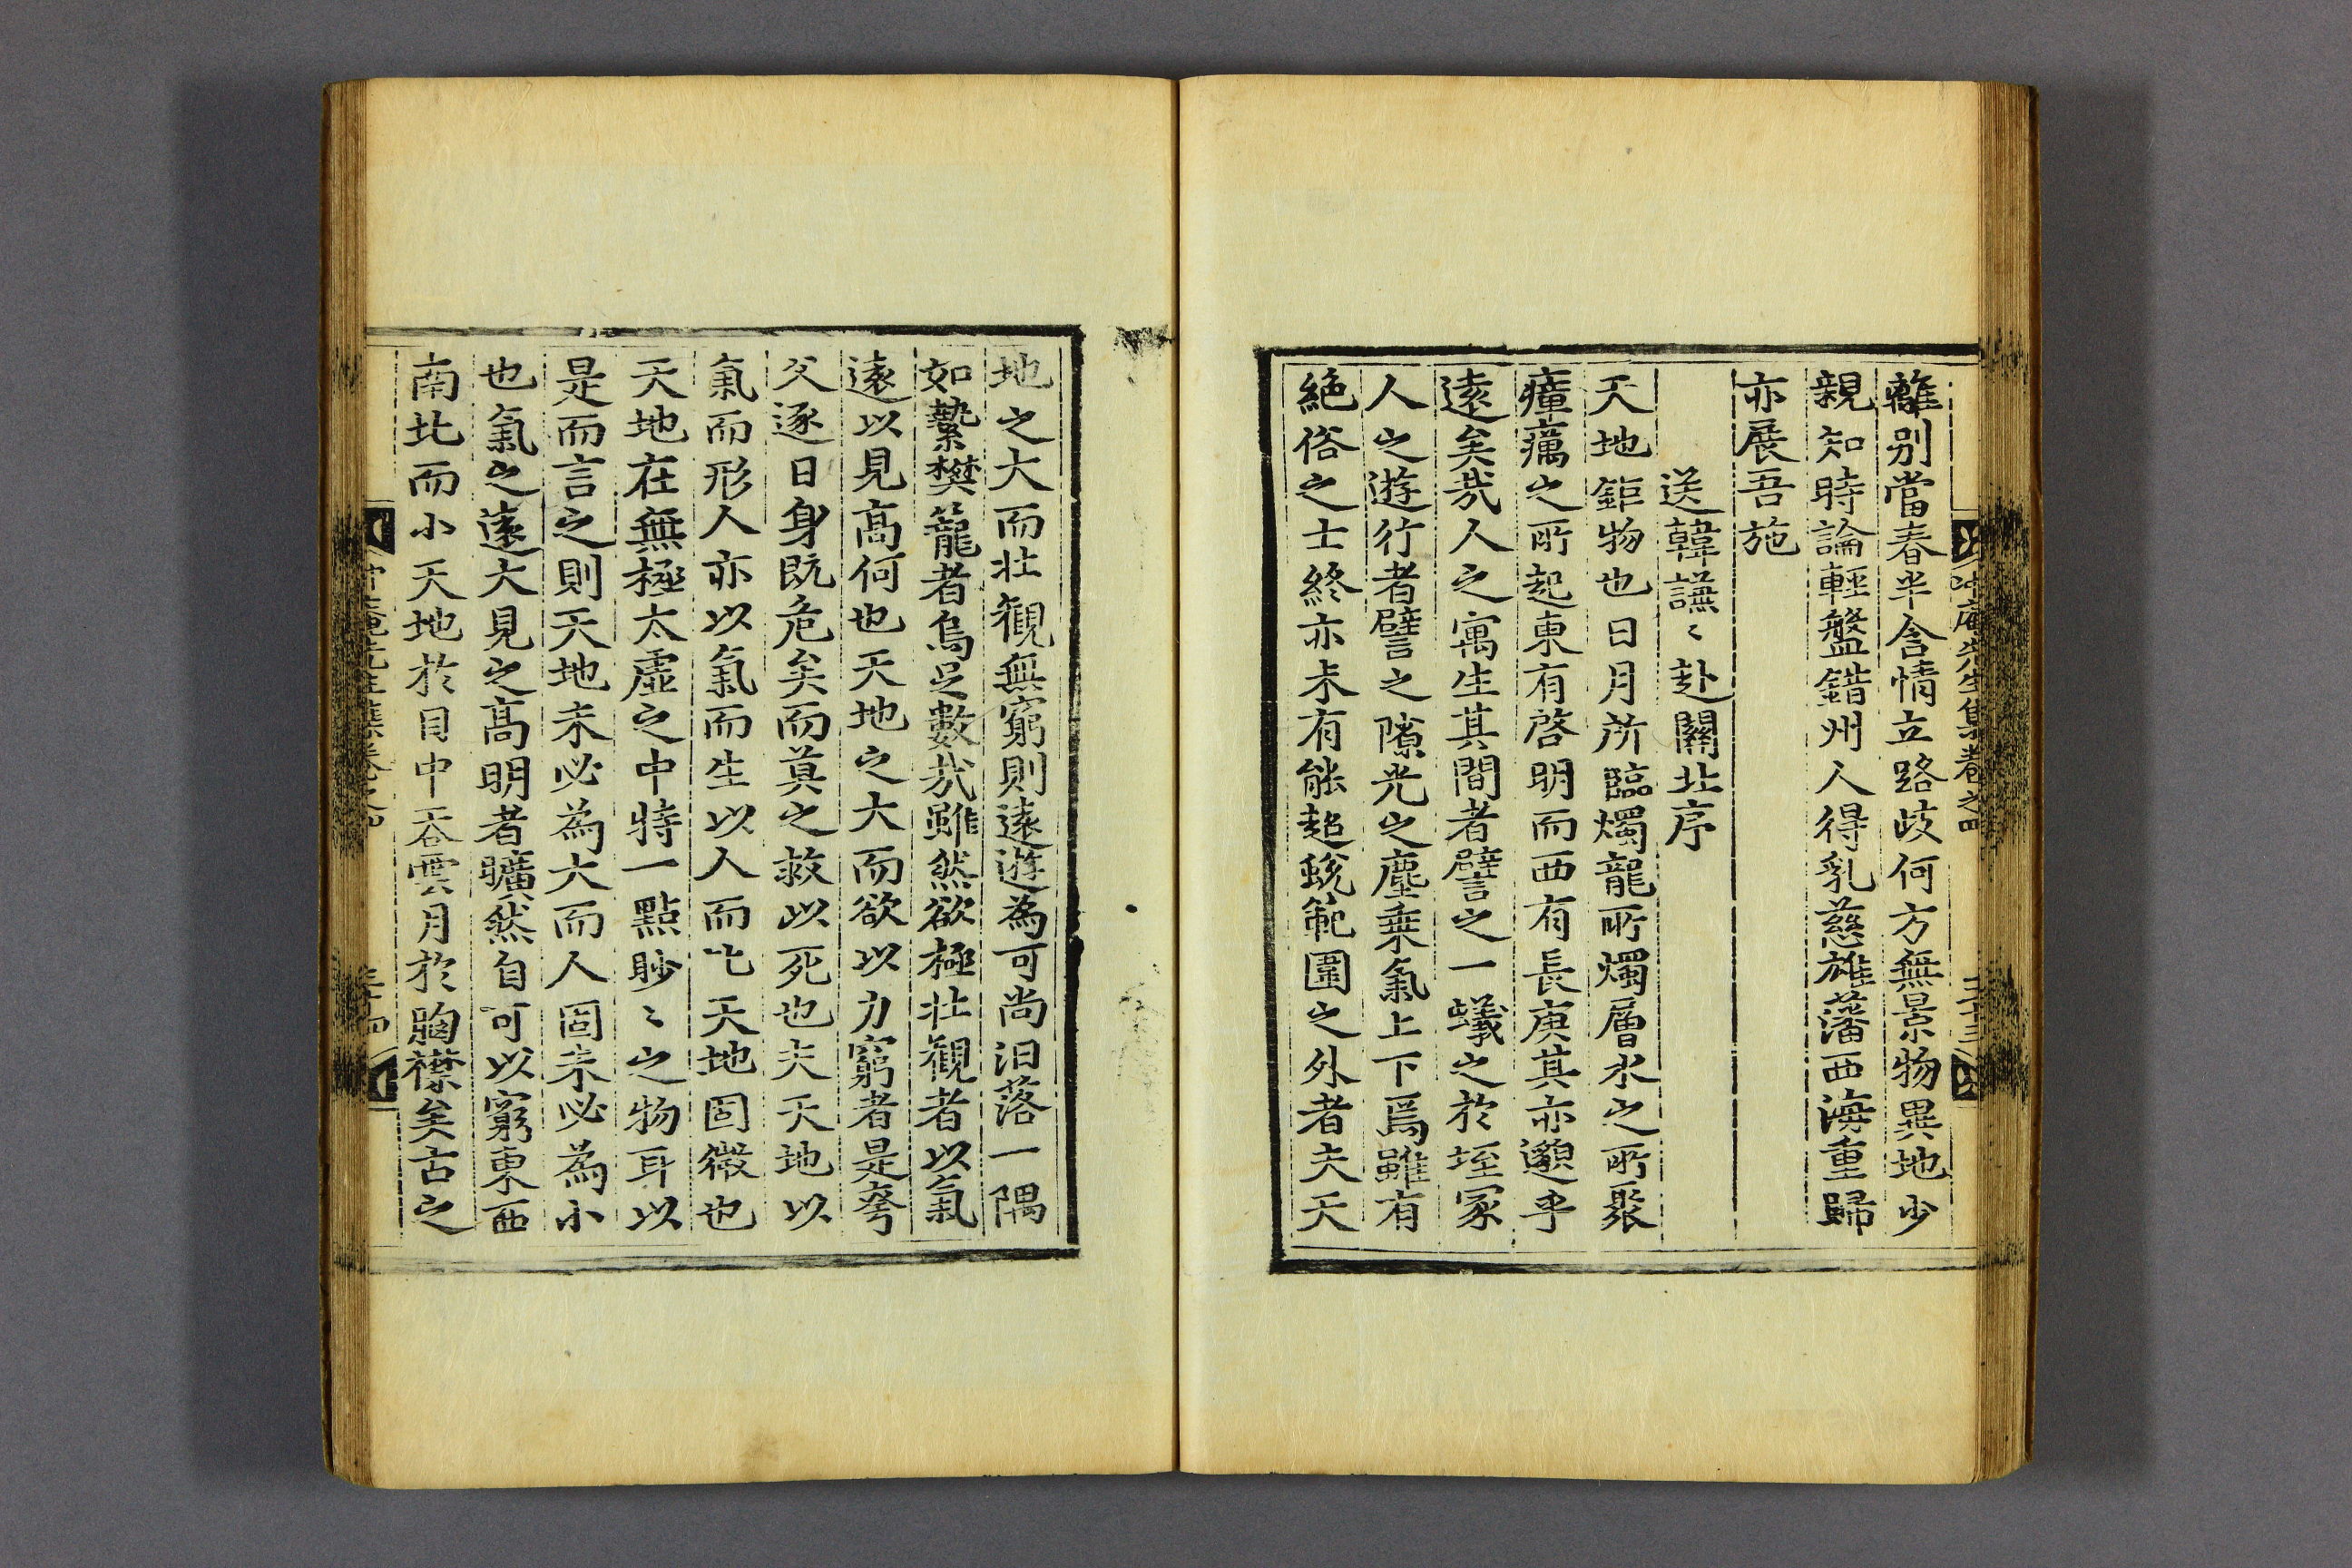 冲庵先生集卷之四 三十三
離别當春半含情立路歧何方無景物異地少
親知時論輕盤錯州人得乳慈雄藩西海重歸
亦展吾施
送韓譕〻赴關北序
天地鉅物也日月所臨燭龍所燭層氷之所聚
瘴癘之所起東有啓明而西有長庚其亦邈乎
遠矣㢤人之寓生其間者譬之一蟻之於垤冢
人之遊行者譬之隙光之塵乗氣上下焉雖有
絶俗之士終亦未有能超蛻範圍之外者夫天
地之大而壮觀無窮則遠遊為可尚汨落一隅
如縶樊籠者烏足數㢤雖然欲極壮觀者以氣
遠以見髙何也天地之大而欲以力窮者是夸
父逐日身既危矣而莫之救以死也夫天地以
氣而形人亦以氣而生以人而比天地固微也
天地在無極太虛之中特一點眇〻之物耳以
是而言之則天地未必為大而人固未必為小
也氣之遠大見之髙明者曠然自可以窮東西
南北而小天地於目中吞雲月於胸襟矣古之
冲庵先生集卷之四 三十四